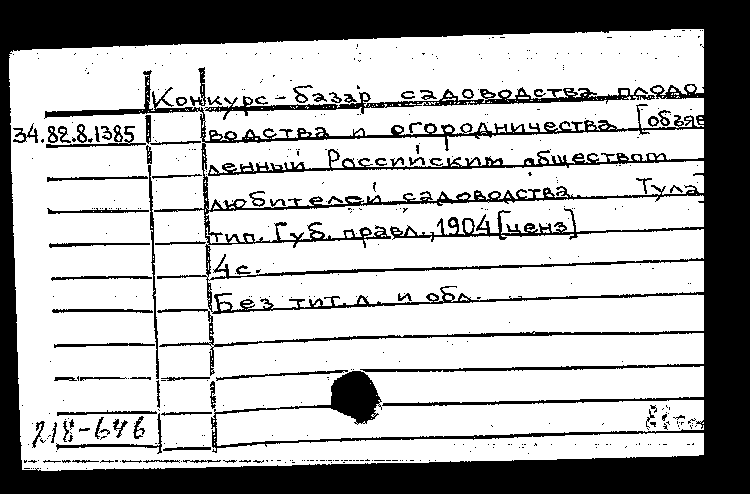 Конкурс-базар садоводства, плодо-
34.82.8.1385 водства и огородничества [объяв
ленный Российским обществом
любителей садоводства. Тула]
тип. Губ. правл., 1904 [ценз]
4 с.
Без тит. л. и обл.
218-646